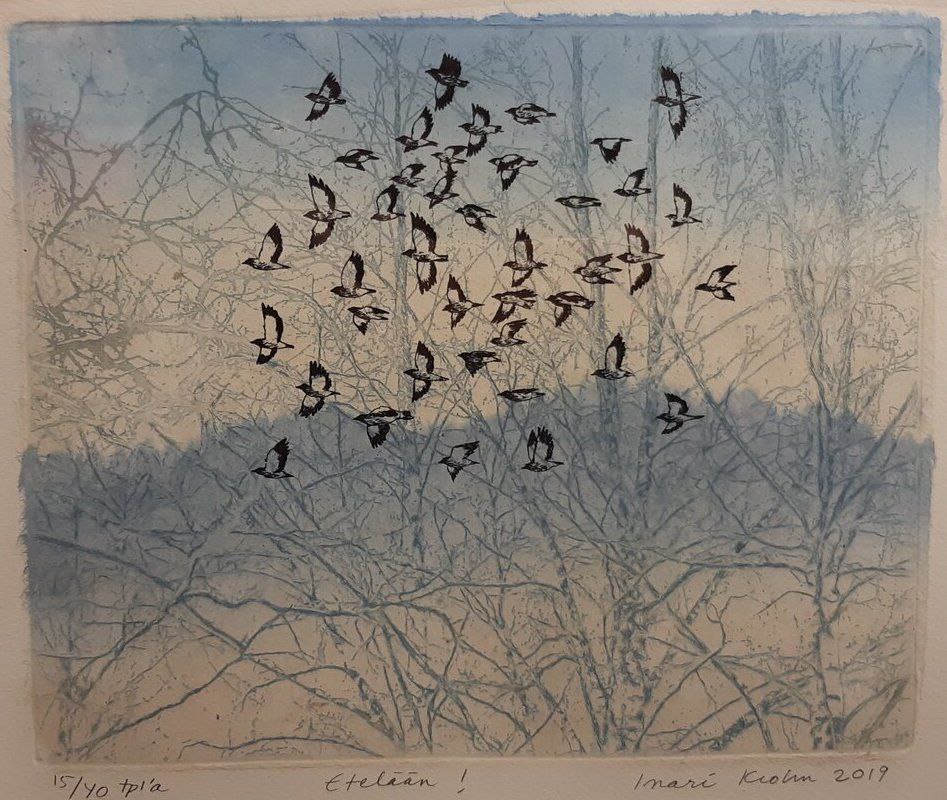 15/40 tpl'a Etelään ! Inari Krohn 2019